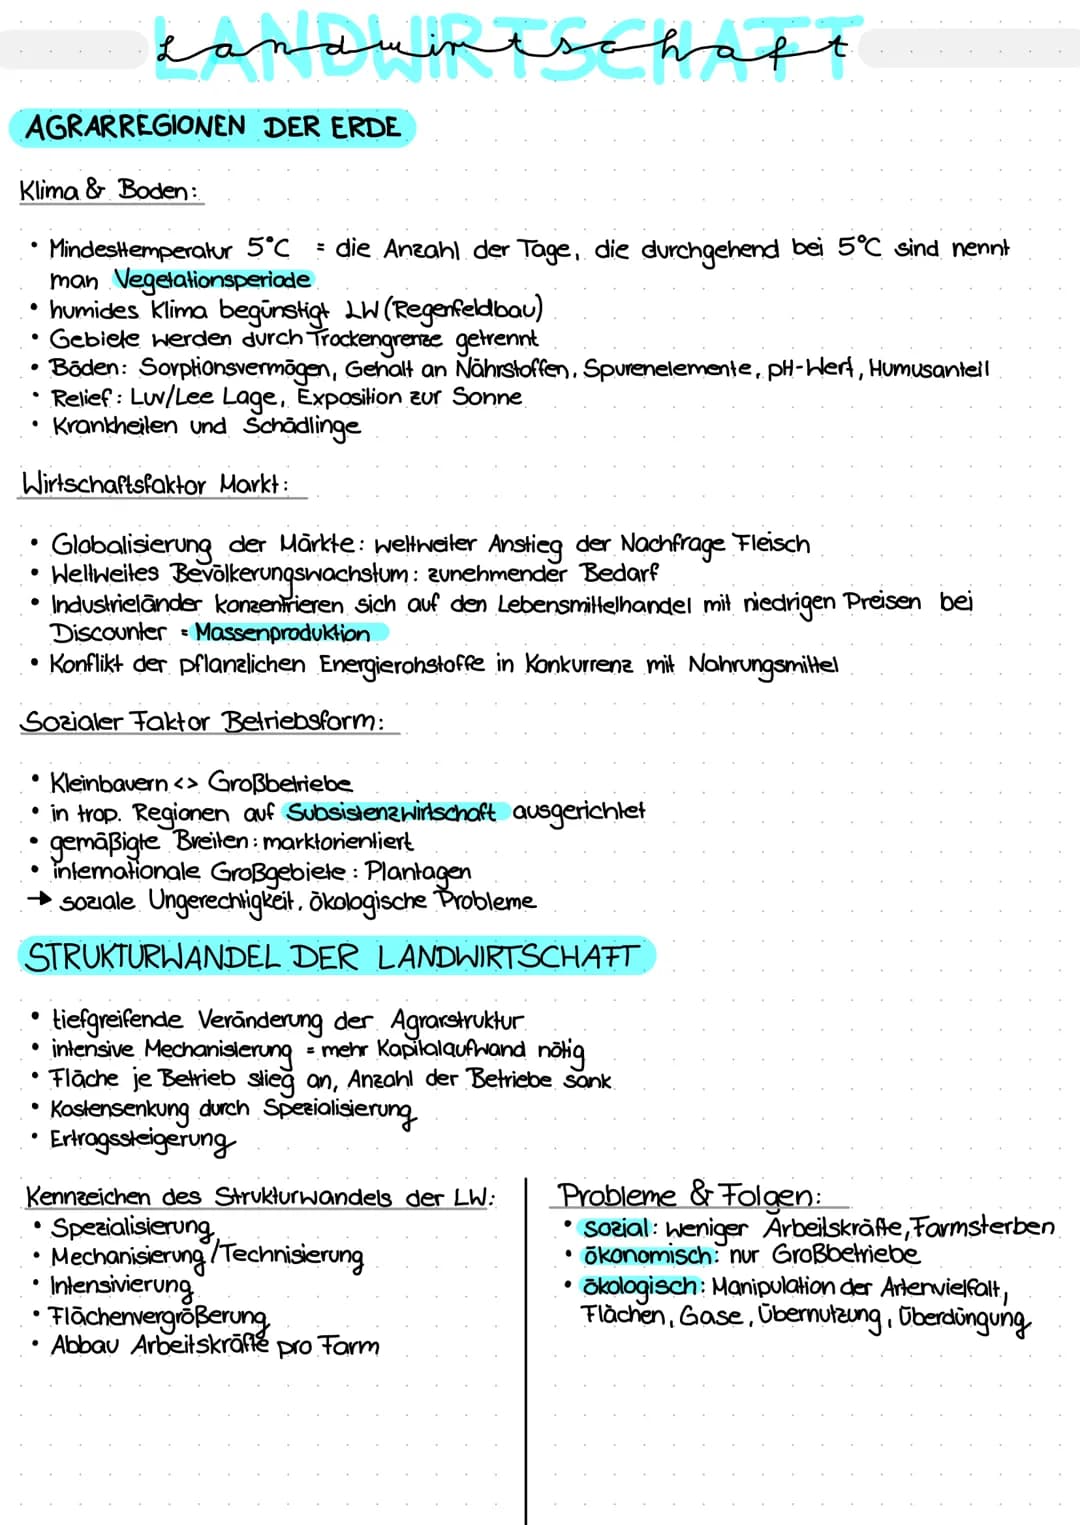 LANDWIRTSCHAFT
Landwirtschaft
AGRARREGIONEN DER ERDE
Klima & Boden:
• Mindesttemperatur 5°C = die Anzahl der Tage, die durchgehend bei 5°C sind nennt
man Vegetationsperiode
• humides Klima begünstigt LW (Regenfeldbau)
• Gebiete werden durch Trockengrenze getrennt
• Böden: Sorptionsvermögen, Gehalt an Nährstoffen, Spurenelemente, pH-Wert, Humusanteil
• Relief: Luv/Lee Lage, Exposition zur Sonne
• Krankheiten und Schädlinge
Wirtschaftsfaktor Markt:
• Globalisierung der Märkte: weltweiter Anstieg der Nachfrage Fleisch
• Weltweites Bevölkerungswachstum: zunehmender Bedarf
• Industrieländer konzentrieren sich auf den Lebensmittelhandel mit niedrigen Preisen bei
Discounter = Massenproduktion
• Konflikt der pflanzlichen Energierohstoffe in Konkurrenz mit Nahrungsmittel
Sozialer Faktor Betriebsform:
• Kleinbauern <> Großbetriebe
• in trop. Regionen auf Subsistenzwirtschaft ausgerichtet
• gemäßigte Breiten: marktorientiert
• internationale Großgebiete: Plantagen
→ soziale Ungerechtigkeit, ökologische Probleme
STRUKTURWANDEL DER LANDWIRTSCHAFT
• tiefgreifende Veränderung der Agrarstruktur
• intensive Mechanisierung = mehr Kapitalaufwand nötig
• Fläche je Betrieb stieg an, Anzahl der Betriebe sank
• Kostensenkung durch Spezialisierung
• Ertragssteigerung
Kennzeichen des Strukturwandels der LW:
• Spezialisierung
• Mechanisierung/Technisierung
• Intensivierung
• Flächenvergrößerung
• Abbau Arbeitskräfte pro Farm
Probleme & Folgen:
• sozial: weniger Arbeitskräfte, Farmsterben
• ökonomisch: nur Großbetriebe
• ökologisch: Manipulation der Artenvielfalt,
Flächen, Gase, Übernutzung, Überdüngung